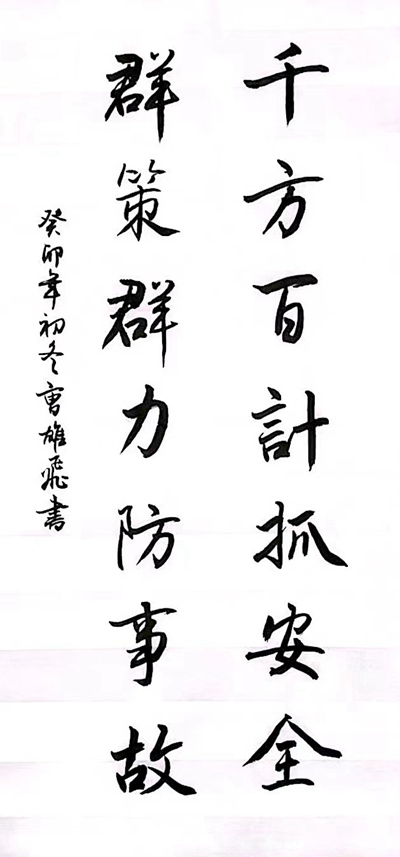 千方百計抓安全
群策群力防事故
癸卯年初冬曹雄飛書